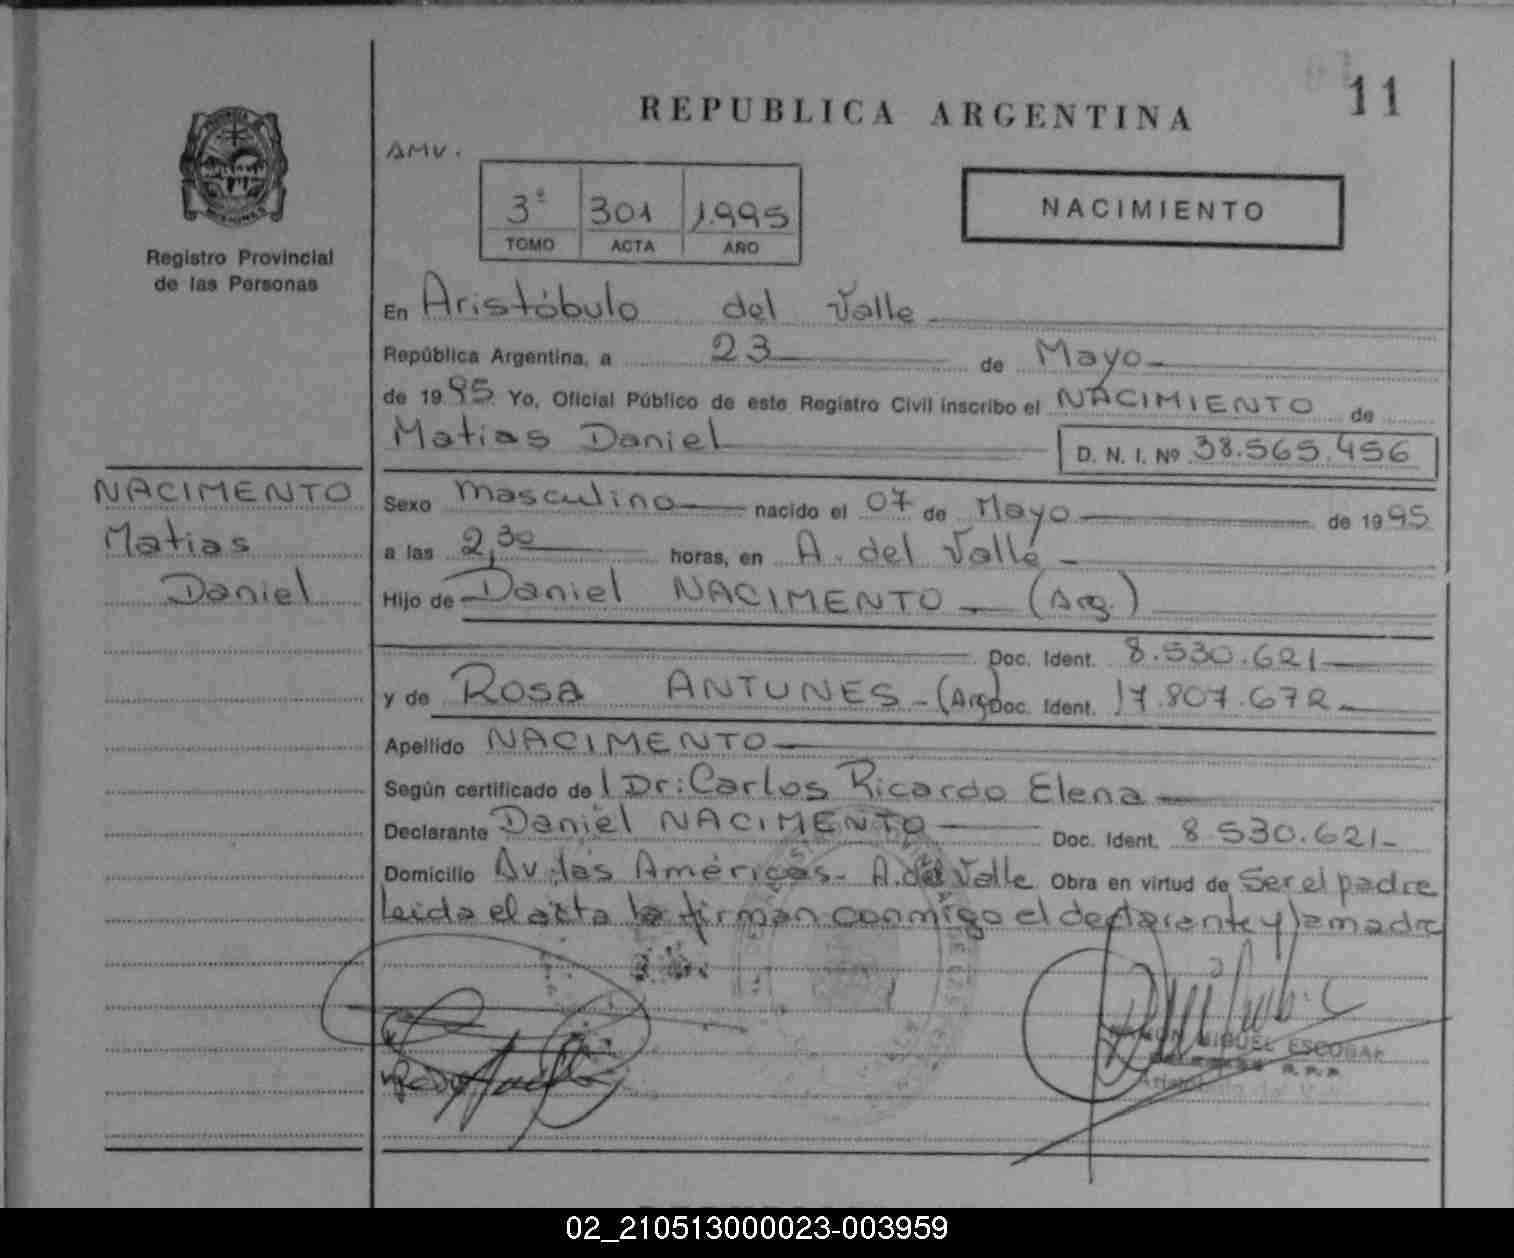 11
REPUBLICA ARGENTINA
AMV.
3º 301 1.995
TOMO ACTA AÑO
NACIMIENTO
Registro Provincial
de las Personas
En Aristóbulo del Valle
República Argentina, a 23 de Mayo
de 1995 Yo, Oficial Público de este Registro Civil inscribo el NACIMIENTO de
Matias Daniel D. N. I. Nº 38.565.456
NACIMENTO
Matias
Daniel
Sexo masculino nacido el 07 de Mayo de 1995
a las 2,30 horas, en A. del Valle
Hijo de Daniel NACIMENTO (Arg.)
Doc. Ident. 8.530.621
y de Rosa ANTUNES - (Arg) Doc. Ident. 17.807.672
Apellido NACIMENTO
Según certificado del Dr: Carlos Ricardo Elena
Declarante Daniel NACIMENTO Doc. Ident. 8.530.621
Domicilio Av. las Américas - A. del Valle Obra en virtud de Ser el padre
leida el acta la firman conmigo el declarante y la madre
MIGUEL ESCOBAR
02_210513000023-003959